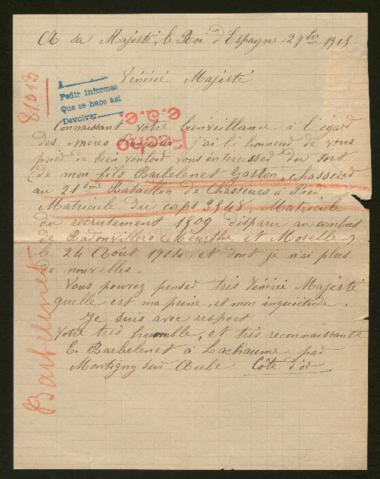 A sa Majesté, le Roi d'Espagne 2 9bre 1915
Vénéré Majesté
81013
A
Pedir informes
Que se hace asi
Devolver
Hecho
e.a.e.
Connaissant votre bienveillance à l'égard
des mères j'ai l'honneur de vous
prier de bien vouloir vous intéresser du sort
de mon fils Barbelenet Gaston, chasseur
au 21ème Bataillon de Chasseurs à Pied
Matricule du corps Matricule
du recrutement 1509 disparu au combat
de Badonviller Meurthe et Moselle,
le 24 Août 1914 et dont je n'ai plus
de nouvelles.
Vous pouvez penser très Vénéré Majesté
quelle est ma peine, et mon inquiétude.
Je suis avec respect
Votre très humble, et très reconnaissante
E. Barbelenet à Lachaume par
Montigny sur Aube Côte d'or
Barbelenet